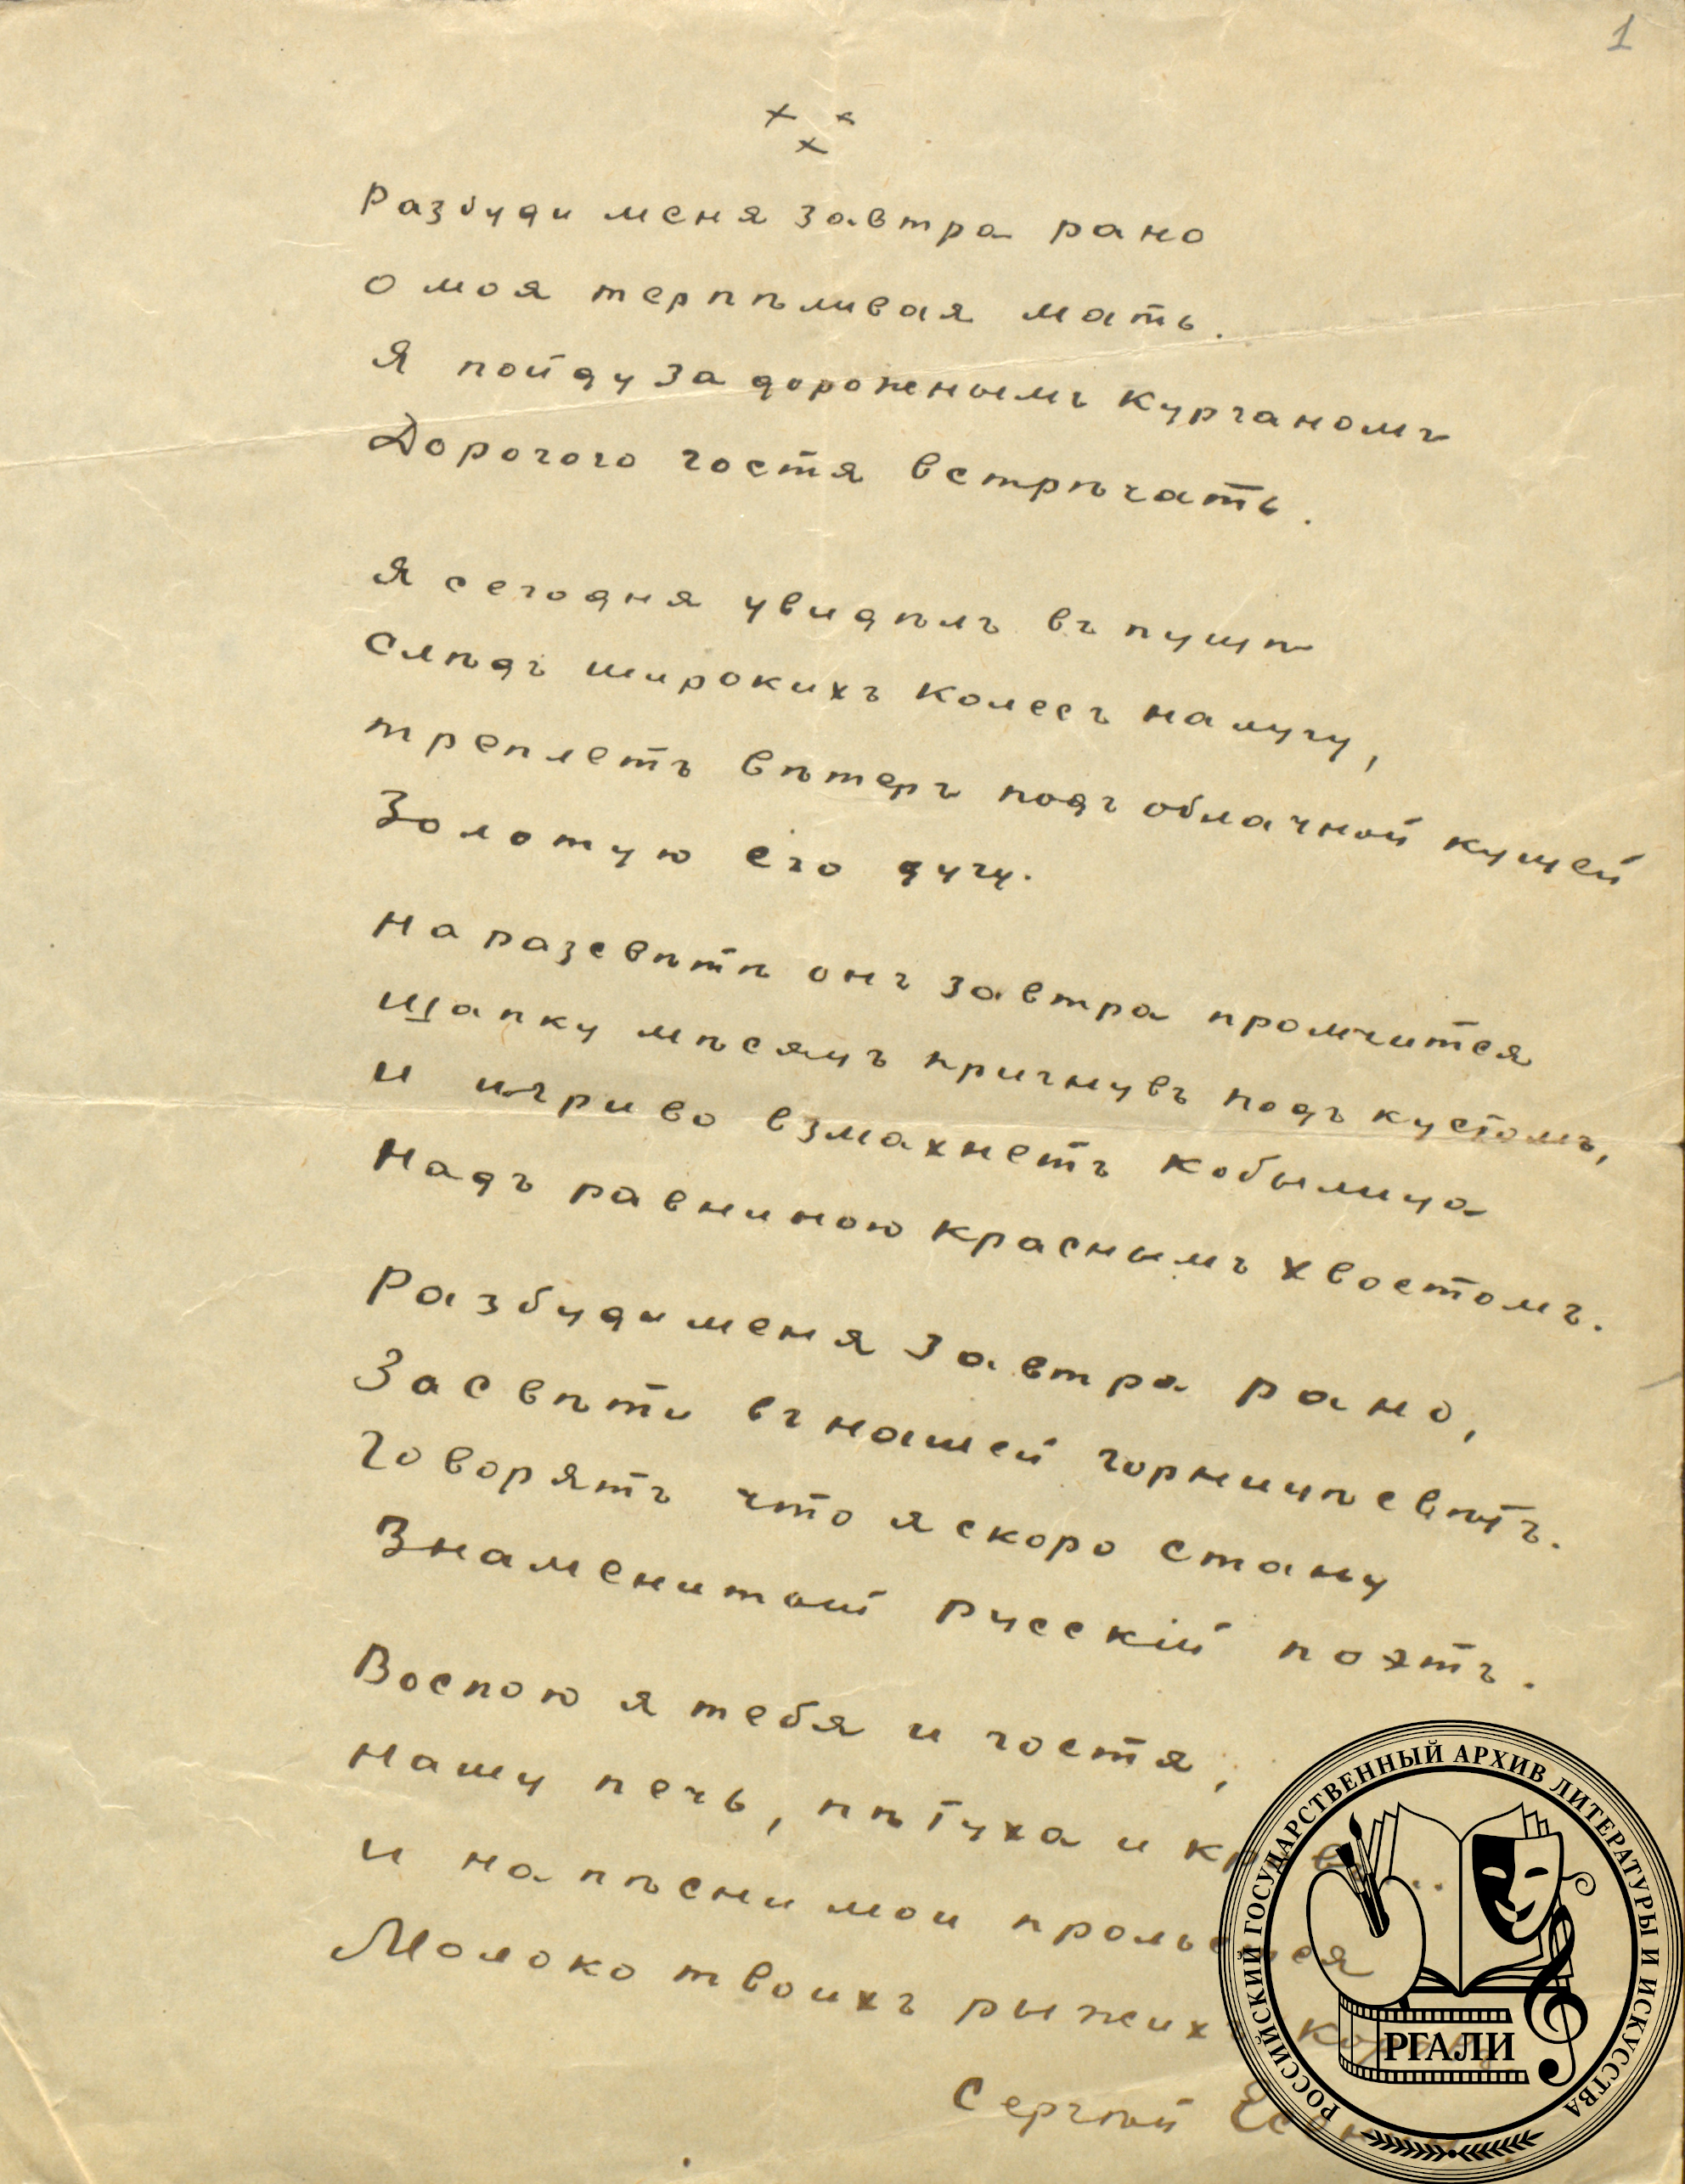 1
× × ×
Разбуди меня завтра рано
о моя терпѣливая мать.
Я пойду за дорожнымъ курганомъ
Дорогого гостя встрѣчать.
Я сегодня увидѣлъ въ пущѣ
Слѣдъ широкихъ колесъ на лугу,
треплетъ вѣтеръ подъ облачной кущей
Золотую его дугу.
На разсвѣтѣ онъ завтра промчится
Шапку мѣсяцъ пригнувъ подъ кустомъ,
и игриво взмахнетъ кобылица
Надъ равниною краснымъ хвостомъ.
Разбуди меня завтра рано,
Засвѣти въ нашей горницѣ свѣтъ.
Говорятъ что я скоро стану
Знаменитый русскій поэтъ.
Воспою я тебя и гостя,
Нашу печь, пѣтуха и кровъ..
и на пѣсни мои прольется
Молоко твоихъ рыжихъ коровъ
Сергѣй Есенин
РОССИЙСКИЙ ГОСУДАРСТВЕННЫЙ АРХИВ ЛИТЕРАТУРЫ И ИСКУССТВА
РГАЛИ